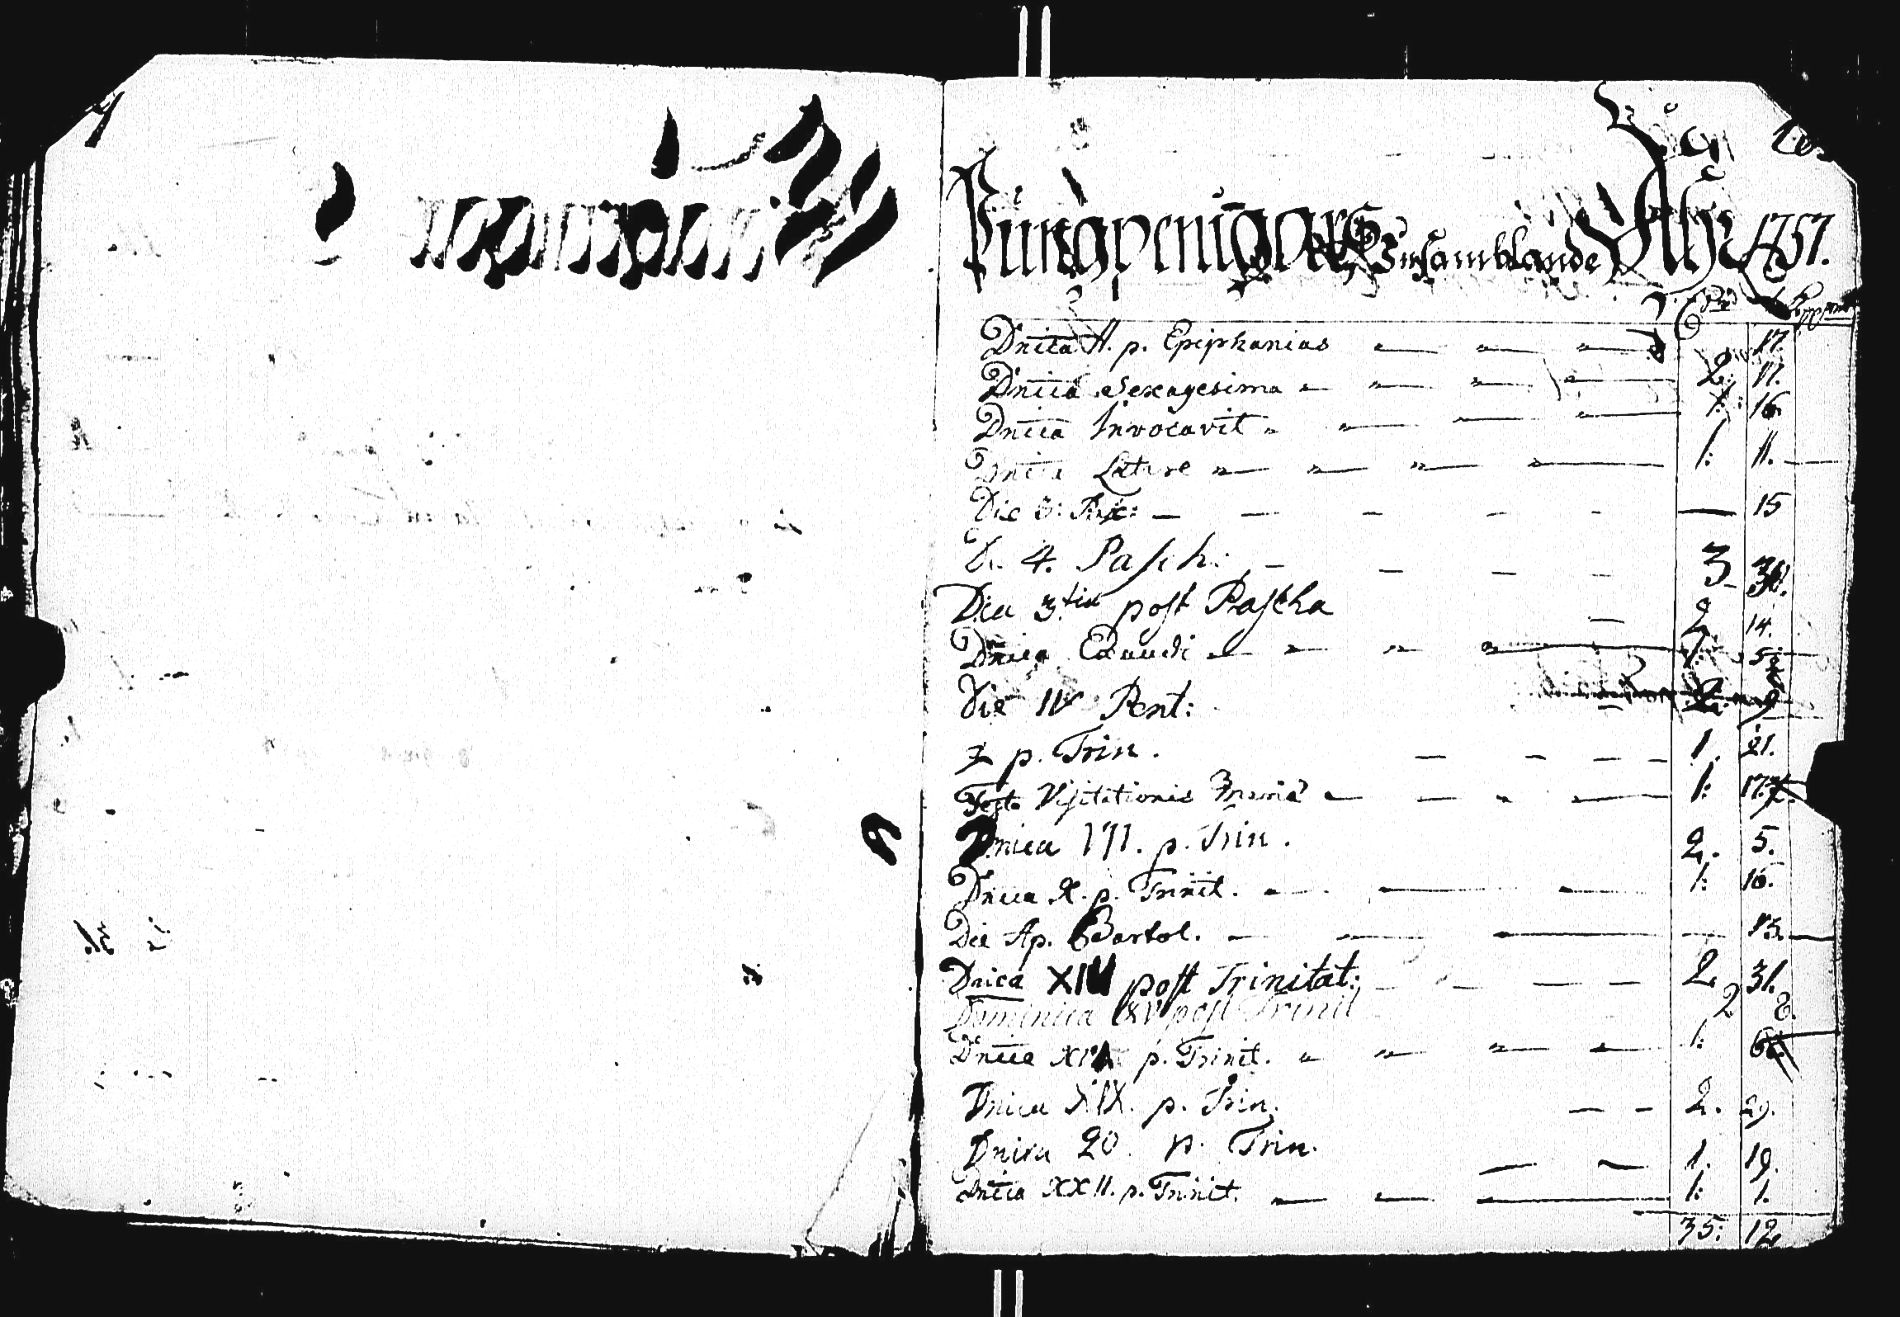 Pungpenigars Insamblande Åhr 1757.
Dnica II. p. Epiphanias 17.
Dnica Sexagesima 2: 17.
Dnica Invocavit 1: 16.
Dnica Lætare 1: 11.
Die 3: Pasc: — 15
D. 4. Pasch: 3
Dca 3tia post Pascha 2. 14.
Dnica Exaudi 1: 5
Die IV Pent: 9
p. Trin. 1. 21.
Festo Visitationis Mariæ 1: 17.
Dnica VII. p. Trin. 2. 5.
Dnica X. p. Trinit. 1: 16.
Die Ap. Bartol. 15.
Dnica XIV post Trinitat: 2. 31.
Dominica XV post Trinit 2 8.
Dnica p. Trinit. 1: 6
Dnica XIX. p. Trin. 2. 29.
Dnica 20. p. Trin. 1. 19.
Dnica XXII. p. Trinit. 1: 1.
35: 12